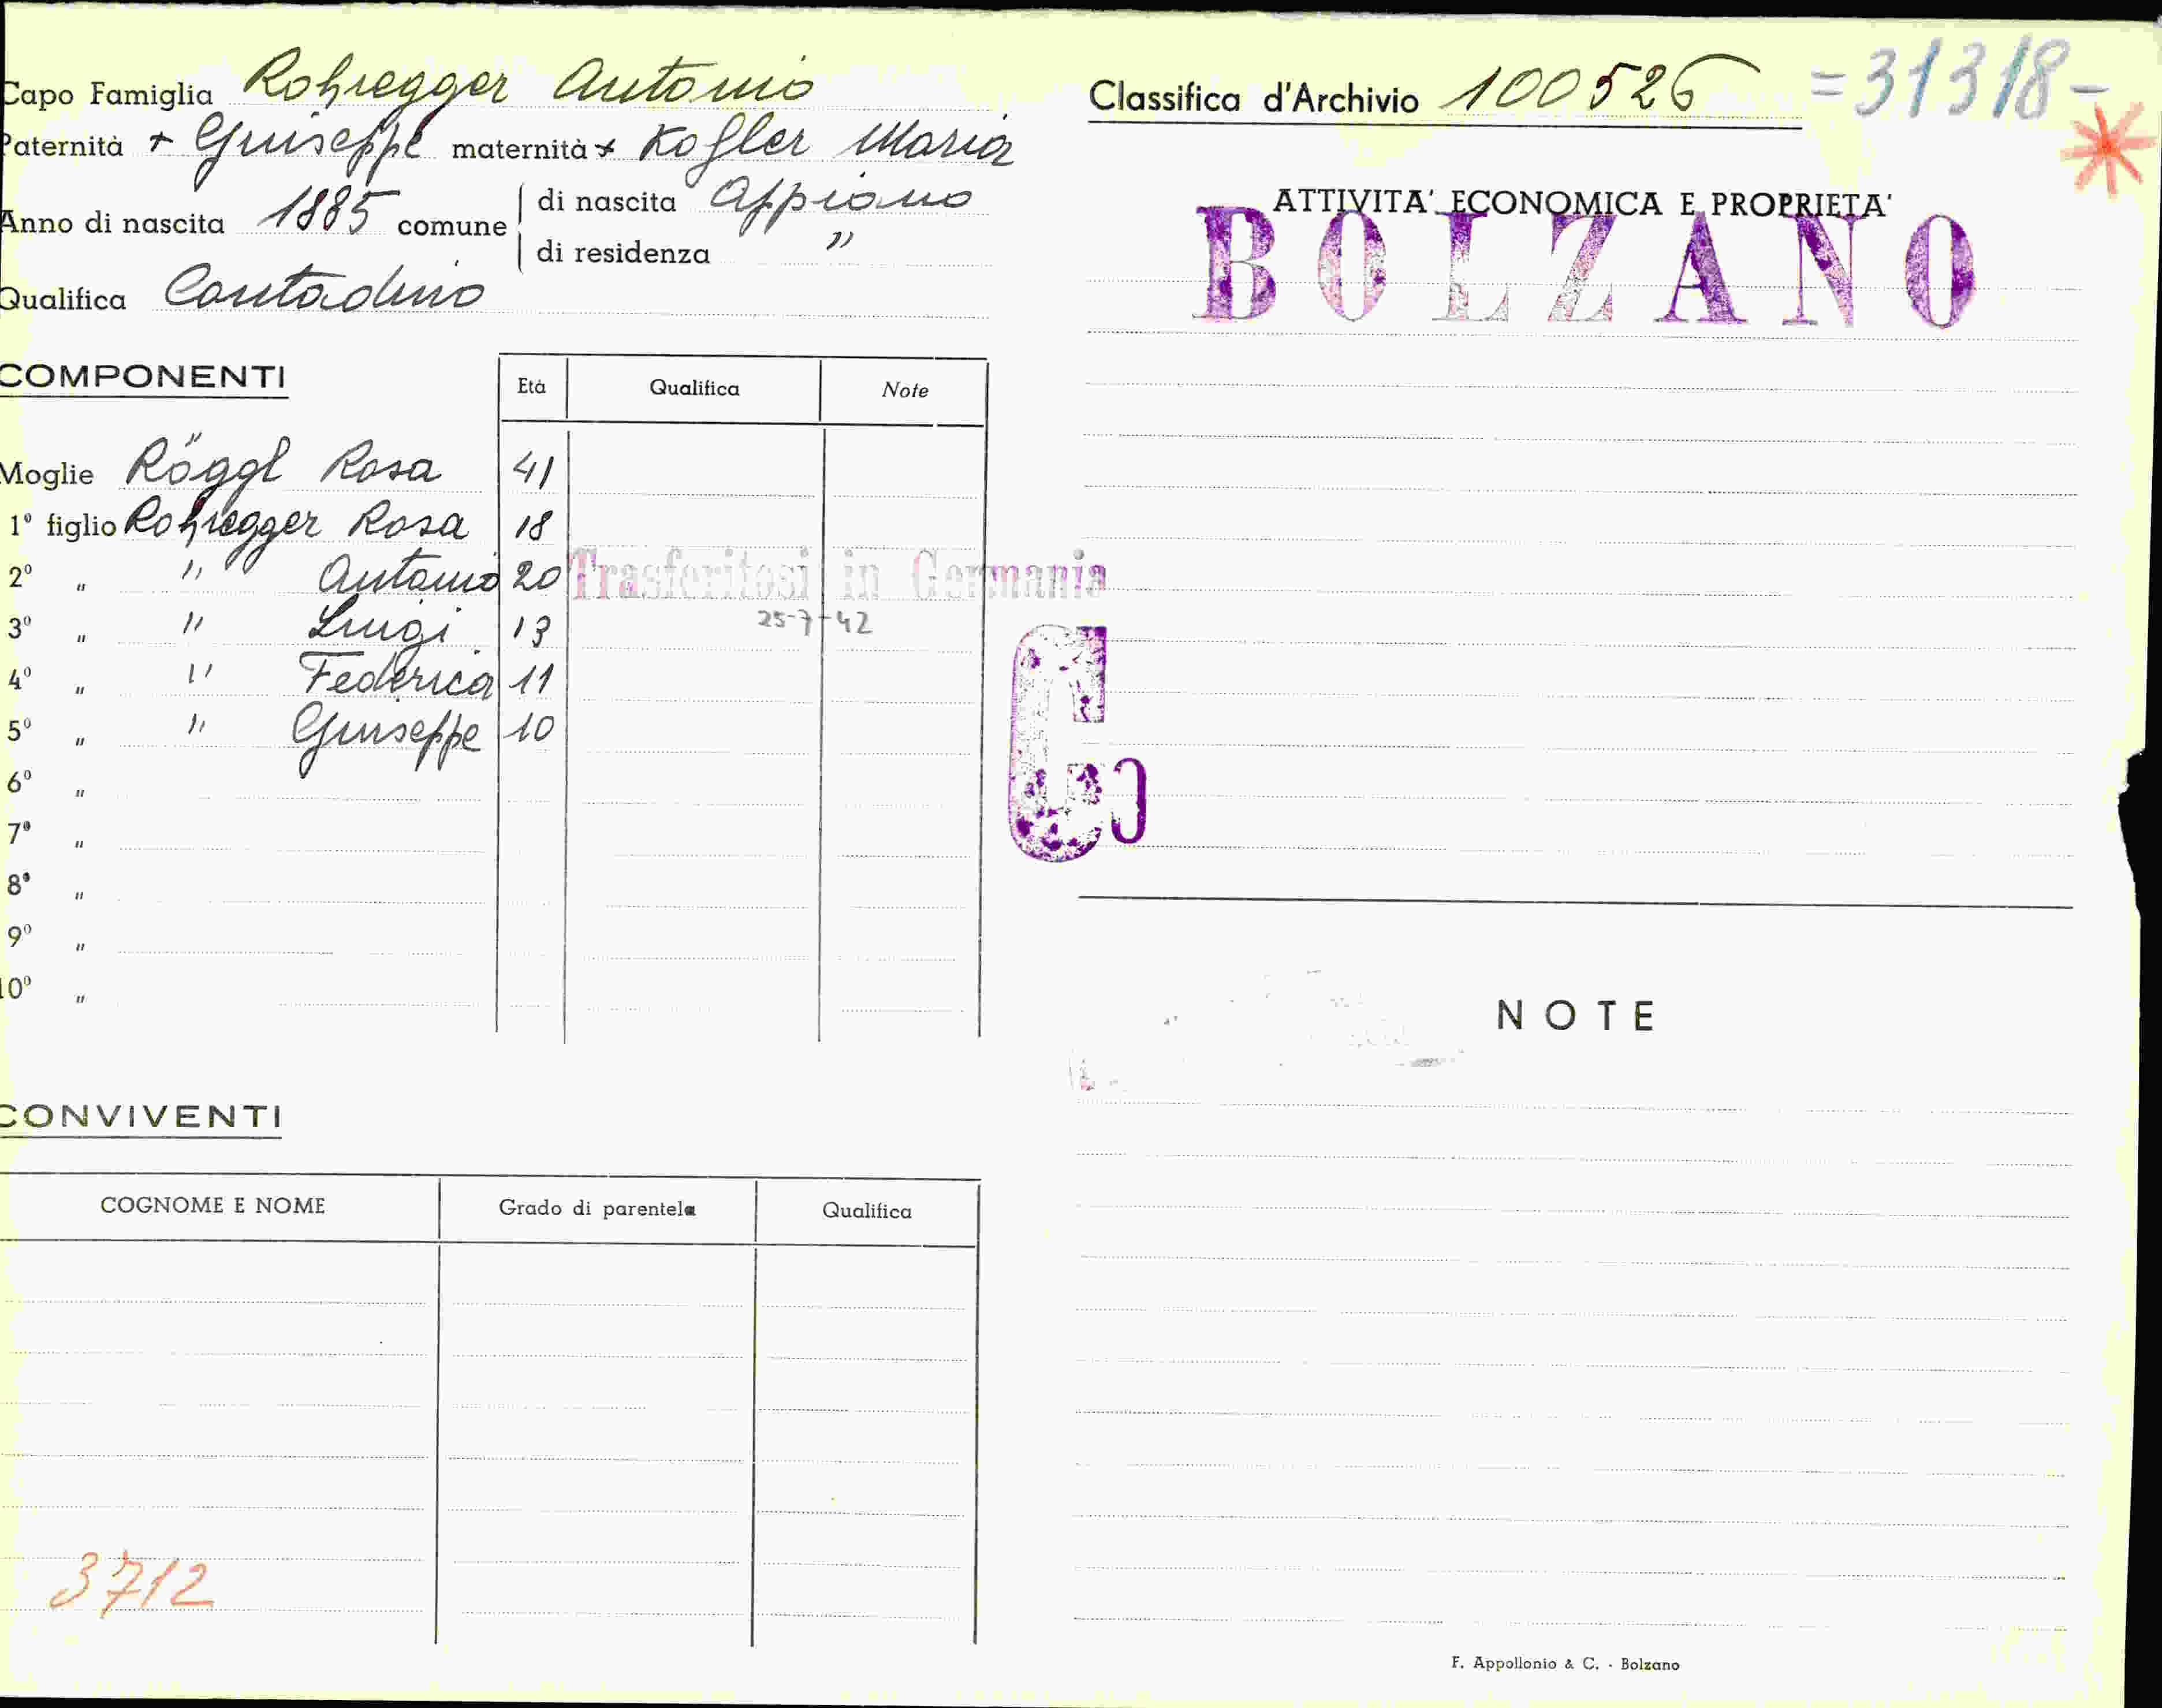 Capo Famiglia Rohregger Antonio
Paternità + Giuseppe maternità + Kofler Maria
Anno di nascita 1885 comune di nascita Appiano
di residenza "
Qualifica Contadino
COMPONENTI Età Qualifica Note
Moglie Röggl Rosa 41
1º figlio Rohregger Rosa 18
2º " " Antonio 20 Trasferitosi in Germania
3º " " Luigi 13 25-7-42
4º " " Federica 11
5º " " Giuseppe 10
6º "
7º "
8º "
9º "
10º "
CONVIVENTI
COGNOME E NOME Grado di parentela Qualifica
3712
Classifica d'Archivio 100526 =31318-
ATTIVITA' ECONOMICA E PROPRIETA'
BOLZANO
G
NOTE
F. Appollonio & C. - Bolzano